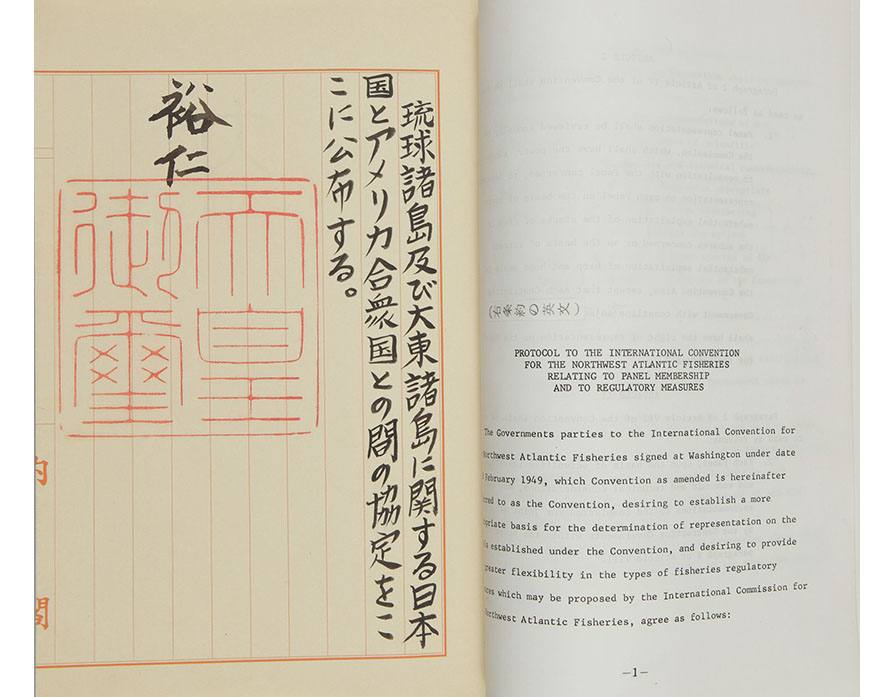 琉球諸島及び大東諸島に関する日本
国とアメリカ合衆国との間の協定をこ
こに公布する。
裕仁
天皇
御璽
内
閣
(右条約の英文)
PROTOCOL TO THE INTERNATIONAL CONVENTION
FOR THE NORTHWEST ATLANTIC FISHERIES
RELATING TO PANEL MEMBERSHIP
AND TO REGULATORY MEASURES
The Governments parties to the International Convention for
Northwest Atlantic Fisheries signed at Washington under date
February 1949, which Convention as amended is hereinafter
to as the Convention, desiring to establish a more
basis for the determination of representation on the
established under the Convention, and desiring to provide
greater flexibility in the types of fisheries regulatory
which may be proposed by the International Commission for
Northwest Atlantic Fisheries, agree as follows:
—1—